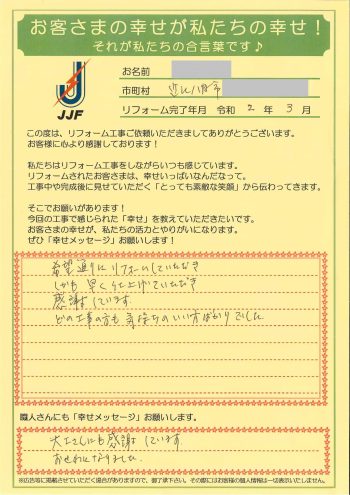 お客さまの幸せが私たちの幸せ！
それが私たちの合言葉です♪
JJF
お名前
市町村 近江八幡市
リフォーム完了年月 令和 2 年 3 月
この度は、リフォーム工事ご依頼いただきましてありがとうございます。
お客様に心より感謝しております！
私たちはリフォーム工事をしながらいつも感じています。
リフォームされたお客さまは、幸せいっぱいなんだなって。
工事中や完成後に見せていただく「とっても素敵な笑顔」から伝わってきます。
そこでお願いがあります！
今回の工事で感じられた「幸せ」を教えていただきたいです。
お客さまの幸せが、私たちの活力とやりがいになります。
ぜひ「幸せメッセージ」お願いします！
希望通りにリフォームしていただき
しかも早く仕上げていただき
感謝しています。
どの工事の方も気持ちのいい方ばかりでした。
職人さんにも「幸せメッセージ」お願いします。
大工さんにも感謝しています。
おせわになりました。
※広告等に掲載させていただく場合がありますので、御了承下さい。その際にはお客様の個人情報は一切表示いたしません。